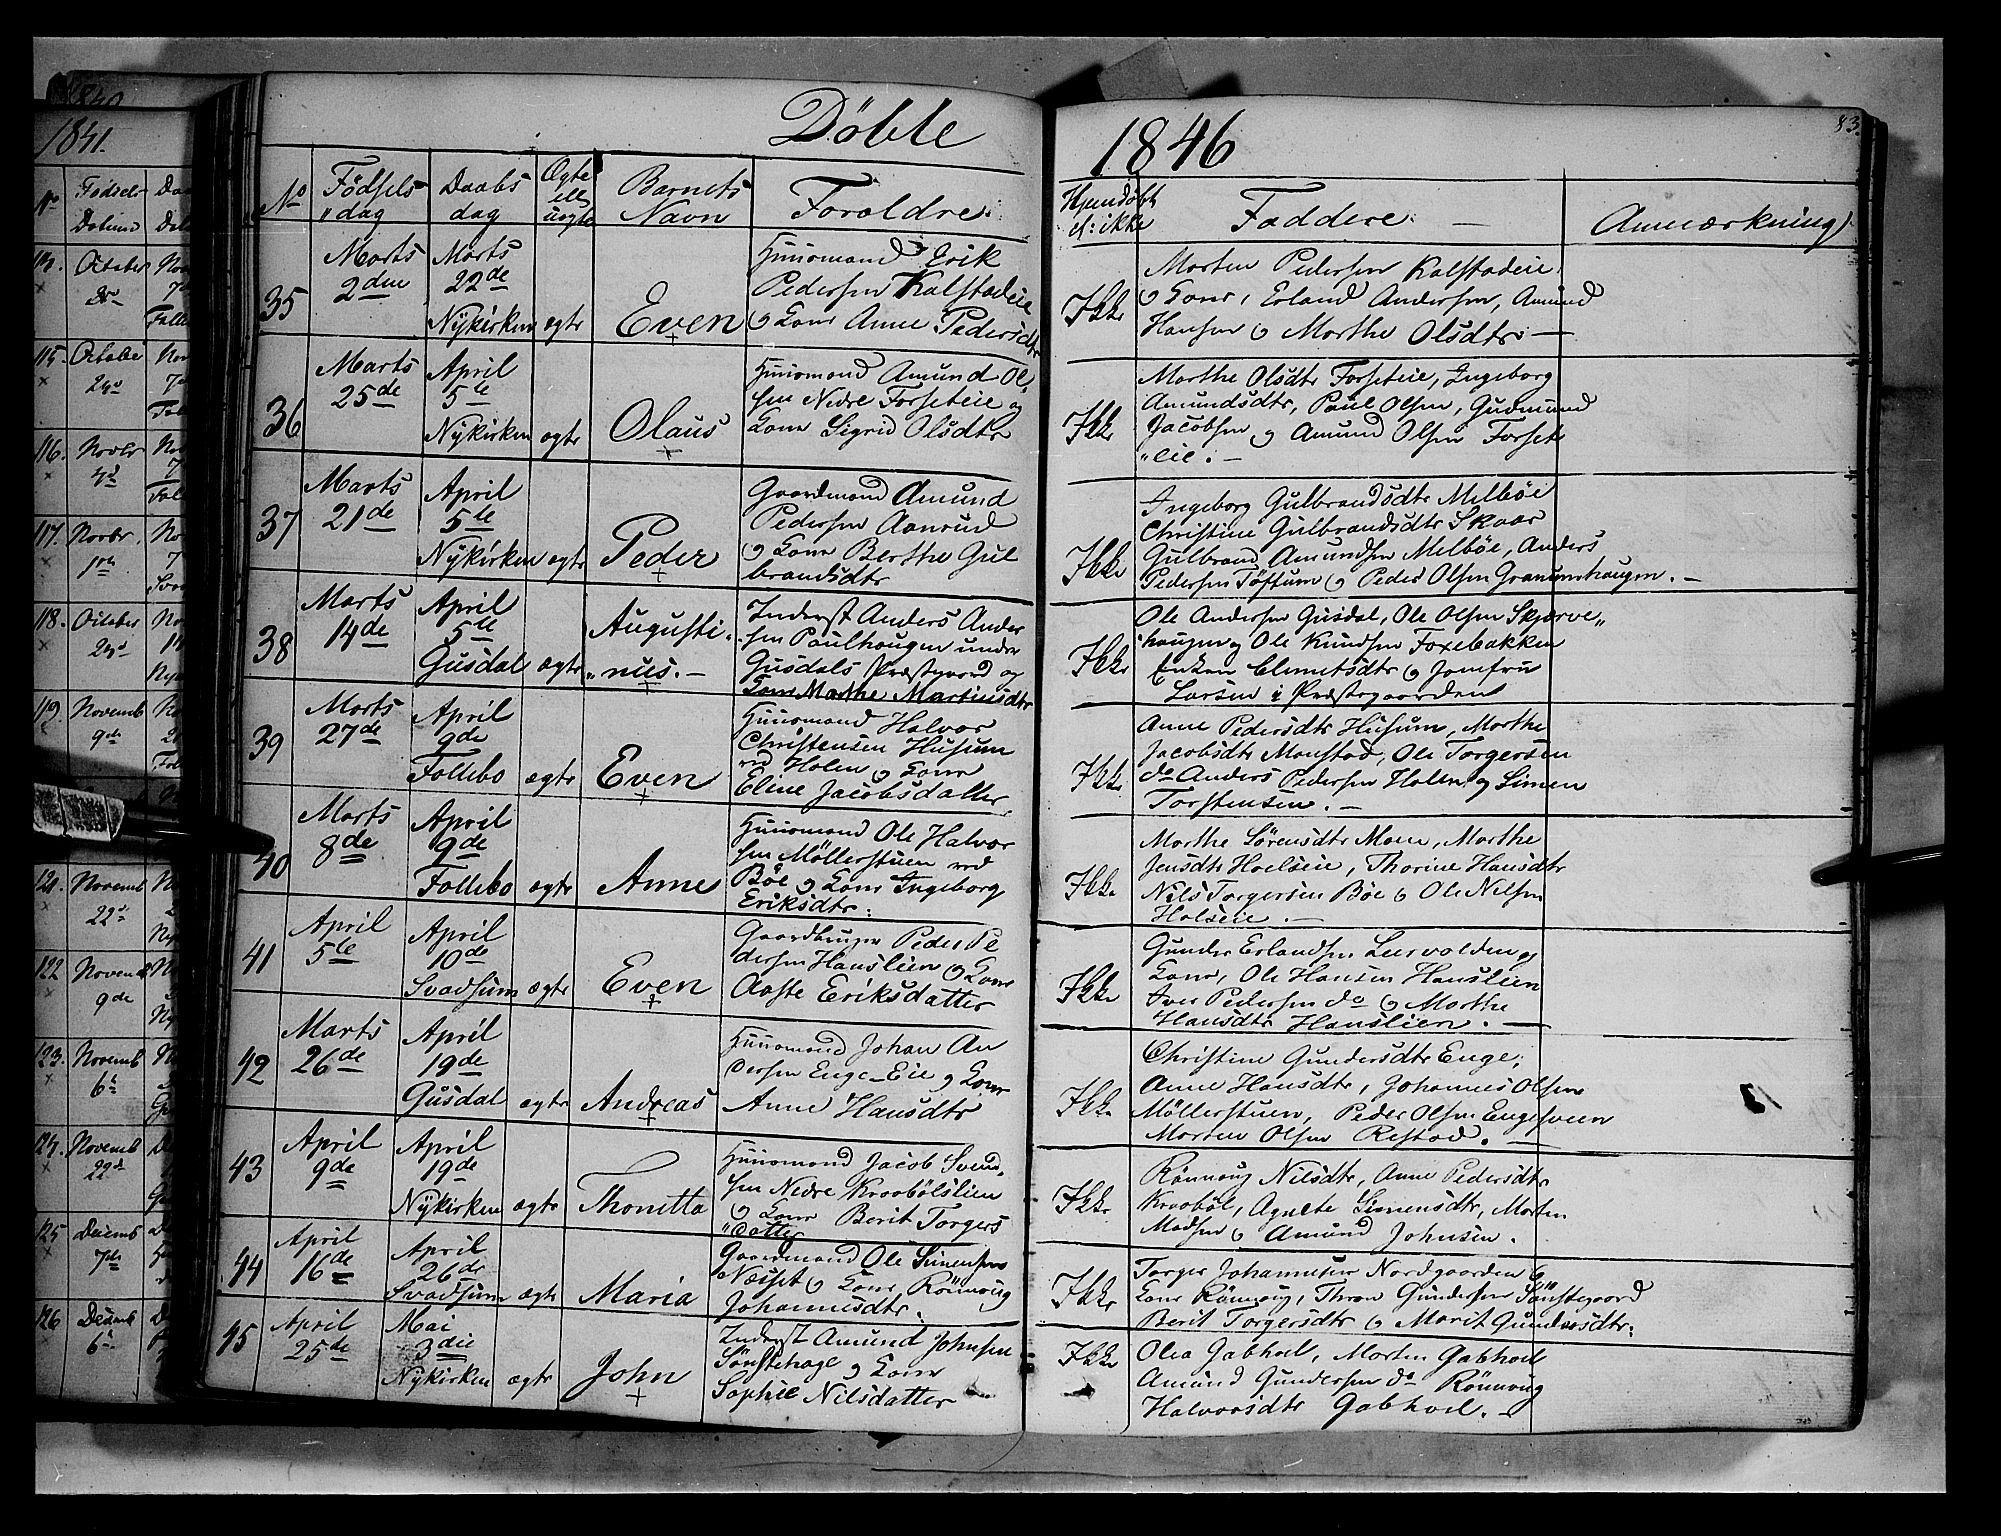 Döbte
1846
83.
No
Födsels
dag
Daabs
dag
Ægte
ell:
uægte
Barnets
Navn
Forældre:
Hjemdöbt
el: ikke
Faddere: —
Anmærkning
35
Marts
2den
Marts
22de
Nykirken
ægte
Even
Huusmand Erik
Pedersen Kalstadeie
og Kone Anne Pedersdtr
Ikke
Morten Pedersen Kalstadeie
og Kone, Erland Andersen, Amund
Hansen og Marthe Olsdtr —
36
Marts
25de
April
5te
Nykirken
ægte
Olaus
Huusmand Amund Ol
sen Nedre Forseteie og
Kone Sigrid Olsdtr
Ikke
Marthe Olsdtr Forseteie, Ingeborg
Amundsdtr, Poul Olsen, Gudmund
Jacobsen og Amund Olsen Forset
eie. —
37
Marts
21de
April
5te
Nykirken
ægte
Peder
Gaardmand Amund
Pedersen Aanrud
og Kone Berthe Gul
brandsdtr
Ikke
Ingeborg Gulbrandsdtr Melböe
Christine Gulbrandsdtr Skaar
Gulbrand Amundsen Melböe, Anders
Pedersen Töftum og Peder Olsen Granumshaugen. —
38
Marts
14de
April
5te
Gusdal
ægte
Augusti„
„nus. —
Inderst Anders Ander
sen Paulhaugen under
Gusdals Præstgaard og
Kone Marthe Martinsdtr
Ikke
Ole Andersen Gusdal, Ole Olsen Skjærve„
haugen og Ole Knudsen Foxebakken
Enken Clemetsdtr og Jomfru
Larsen i Præstegaarden
39
Marts
27de
April
9de
Follebo
ægte
Even
Huusmand Halvor
Christensen Husum
ved Holen og Kone
Eline Jacobsdatter
Ikke
Anne Pedersdtr Husum, Marthe
Jacobsdtr Monstad, Ole Torgersen
do Anders Pedersen Holen og Simen
Torstensen. —
40
Marts
8de
April
9de
Follebo
ægte
Anne
Huusmand Ole Halvor
sen Möllerstuen ved
Böe og Kone Ingeborg
Eriksdtr:
Ikke
Marthe Sörensdtr Moen, Marthe
Jensdtr Hoelseie, Thorine Hansdtr
Nils Torgersen Böe og Ole Nilsen
Holseie. —
41
April
5te
April
10de
Svadsum
ægte
Even
Gaardbruger Peder Pe
dersen Hanslien og Kone
Aaste Eriksdatter
Ikke
Gunder Erlandsen Leervolden og
Kone, Ole Hansen Hanslien
Iver Pedersen do og Marthe
Hansdtr Hanslien. —
42
Marts
26de
April
19de
Gusdal
ægte
Andreas
Huusmand Johan An
dersen Enge-Eie og Kone
Anne Hansdtr
Ikke
Christine Gundersdtr Enge,
Anne Hansdtr, Johannes Olsen
Möllerstuen, Peder Olsen Engesveen
Morten Olsen Restad. —
43
April
9de
April
19de
Nykirken
ægte
Thonetta
Huusmand Jacob Svend„
sen Nedre Kroobölslien
og Kone Berit Torgers
„datter
Ikke
Rönnoug Nilsdtr, Anne Pedersdtr
Krooböl, Agnete Simensdtr, Morten
Madsen og Amund Johnsen.
44
April
16de
April
26de
Svadsum
ægte
Maria
Gaardmand Ole Simensen
Næsset og Kone Rönnoug
Johannesdtr.
Ikke
Torger Johannesen Nordgaarden og
Kone Rönnoug, Thron Gundersen Sönstegaard
Berit Torgersdtr og Marit Gundersdtr:
45
April
25de
Mai
3die
Nykirken
ægte
John
Inderst Amund Johnsen
Sönstehage og Kone
Sophie Nilsdatter
Ikke
Olea Gabhoel, Morten Gabhoel
Amund Gundersen do Rönnoug
Halvorsdtr Gabhoel. —
1840
1841.
No
Födsels
Datum
October
115.
October
116.
Novbr
117.
Novbr
118.
October
119.
Novemb
9de
121.
Novemb
22
122
Novemb
9de
123.
Novemb
6
124.
Novemb
22d
125
Decemb
7de
126
Decemb
6